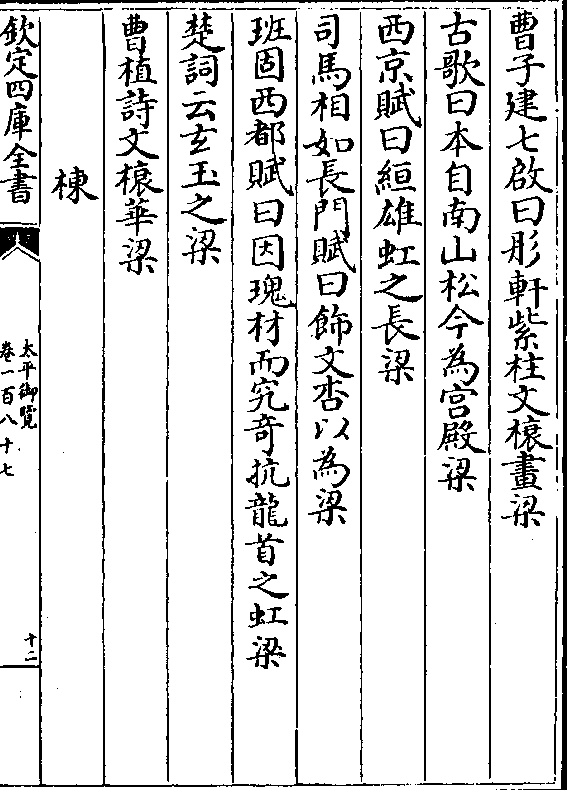 曹子建七啟曰彤軒紫柱文榱畫梁
古歌曰本自南山松今為宫殿梁
西京賦曰絙雄虹之長梁
司馬相如長門賦曰飾文杏以為梁
班固西都賦曰因瑰材而究竒抗龍首之虹梁
楚詞云玄玉之梁
曹植詩文榱華梁
棟
欽定四庫全書
太平御覽
卷一百八十七
十二